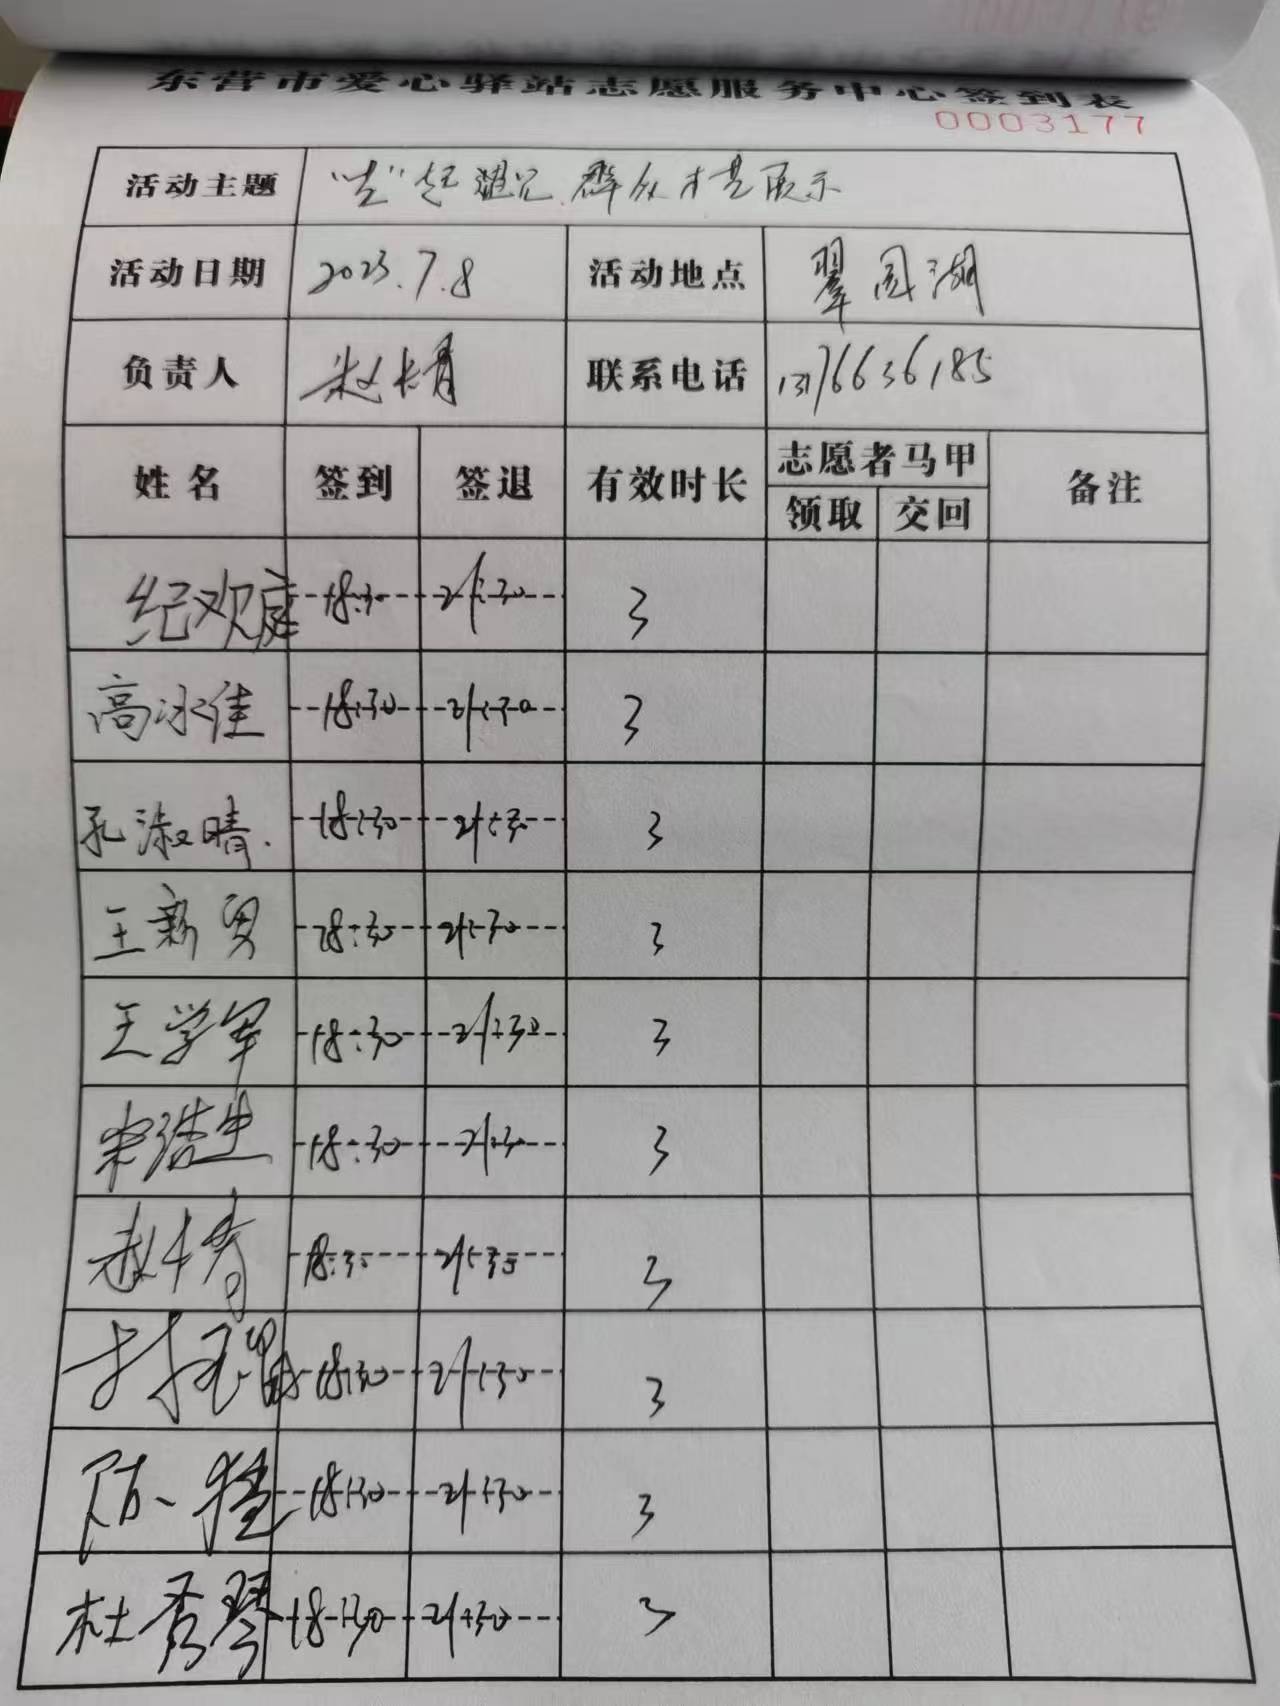 东营市爱心驿站志愿服务中心签到表
0003177
活动主题 群众才艺展示
活动日期 2023.7.8 活动地点 翠园湖
负责人 赵长青 联系电话 13176636185
姓名 签到 签退 有效时长 志愿者马甲 备注
领取 交回
纪观庭 18:30 21:30 3
高冰佳 18:30 21:30 3
孔淑晴 18:30 21:30 3
王新男 18:30 21:30 3
王学军 18:30 21:30 3
宋浩生 18:30 21:30 3
赵长青 18:30 21:30 3
18:30 21:30 3
陈 18:30 21:30 3
杜秀琴 18:30 21:30 3